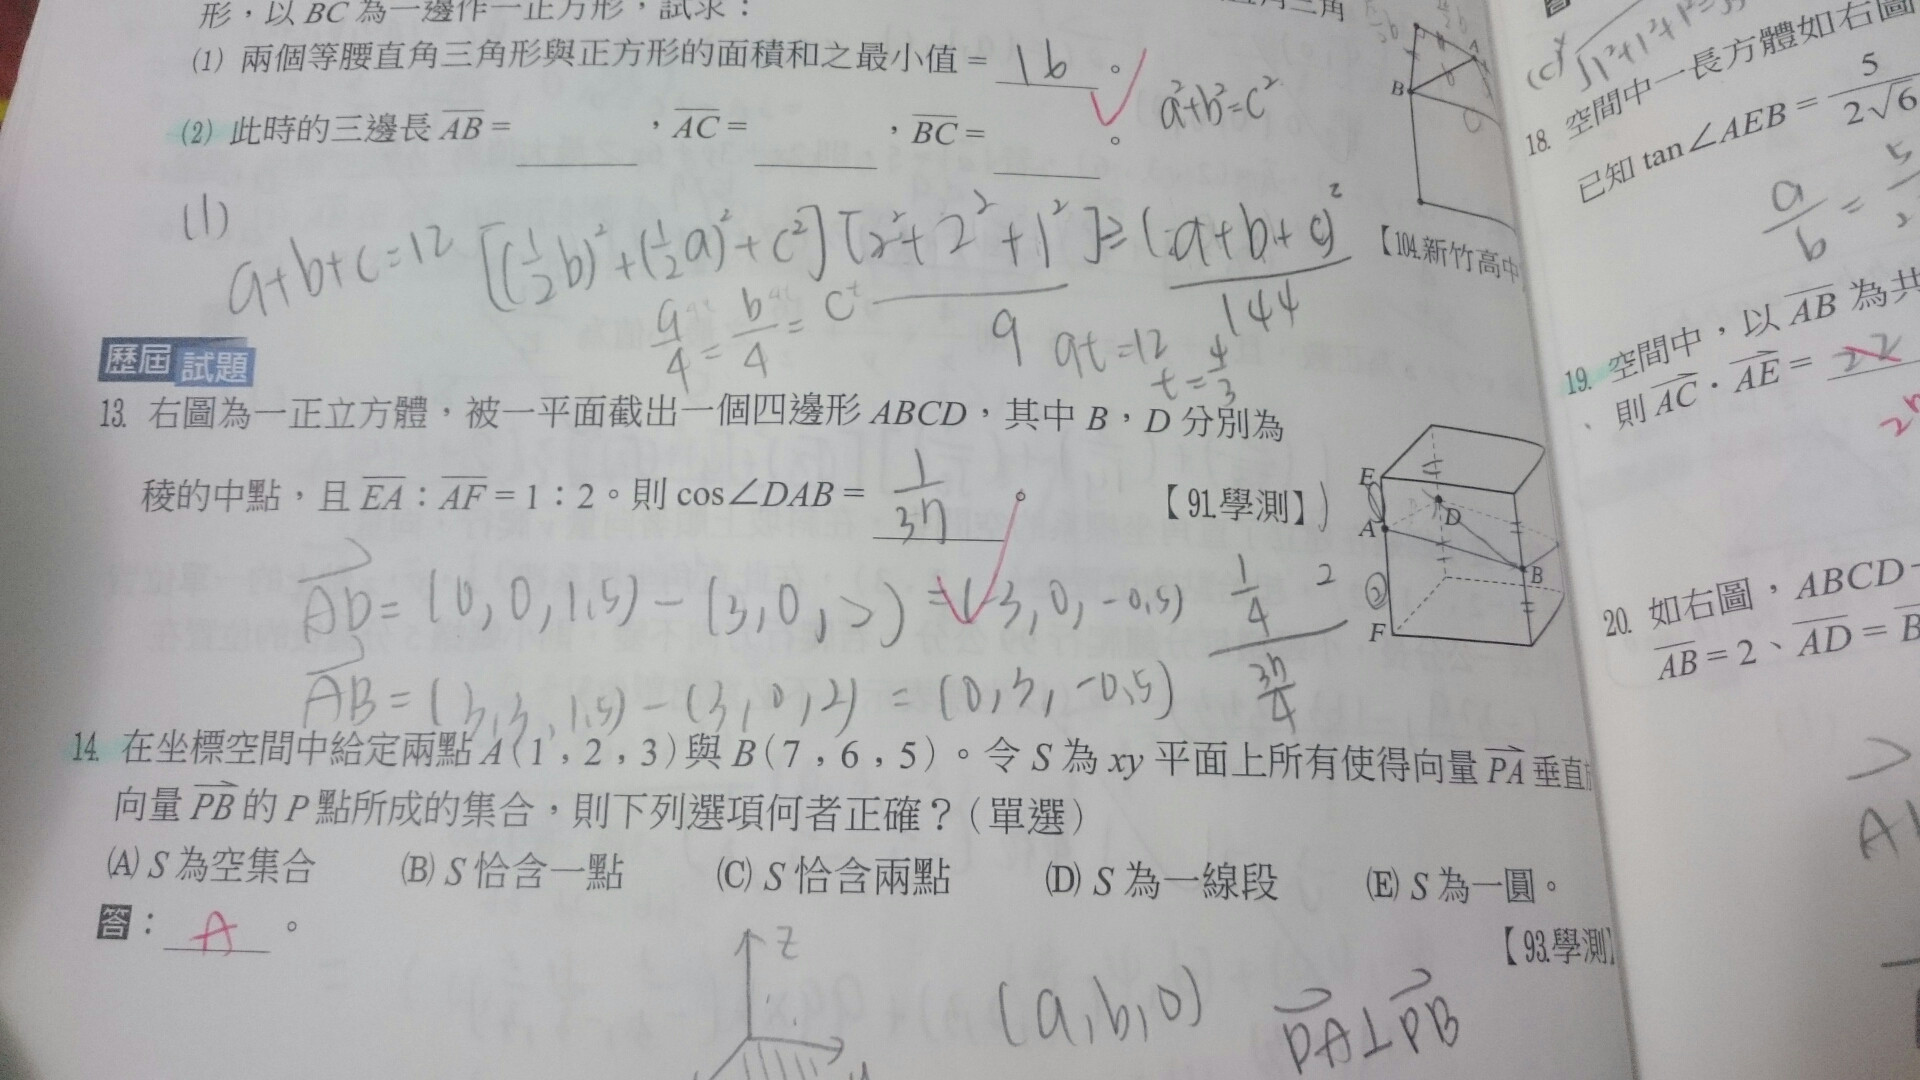 形，以 BC 為一邊作一正方形，試求：
(1) 兩個等腰直角三角形與正方形的面積和之最小值 = 16 。
a²+b²=c²
(2) 此時的三邊長 AB = ，AC = ，BC = 。
(1)
a+b+c=12 [(1/2 b)²+(1/2 a)²+c²][2²+2²+1²]≥(a+b+c)²
9 144
a/4 = b/4 = c
9t=12
t=4/3
【104.新竹高中
B
歷屆試題
13. 右圖為一正立方體，被一平面截出一個四邊形 ABCD，其中 B，D 分別為
稜的中點，且 EA：AF = 1：2。則 cos∠DAB = 1/37 。 【91.學測】
E
A
D
B
F
②
AD = (0,0,1.5) - (3,0,2) = (-3,0,-0.5)
1/4
37/4
AB = (3,3,1.5) - (3,0,2) = (0,3,-0.5)
14. 在坐標空間中給定兩點 A(1，2，3) 與 B(7，6，5)。令 S 為 xy 平面上所有使得向量 PA 垂直
向量 PB 的 P 點所成的集合，則下列選項何者正確？(單選)
(A) S 為空集合 (B) S 恰含一點 (C) S 恰含兩點 (D) S 為一線段 (E) S 為一圓。
答： A 。
【93.學測】
z
(a,b,0)
PA⊥PB
18. 空間中一長方體如右圖
已知 tan∠AEB = 5/2√6
a/b = 5
19. 空間中，以 AB 為共
則 AC · AE = 22
20. 如右圖，ABCD-
AB = 2、AD = B